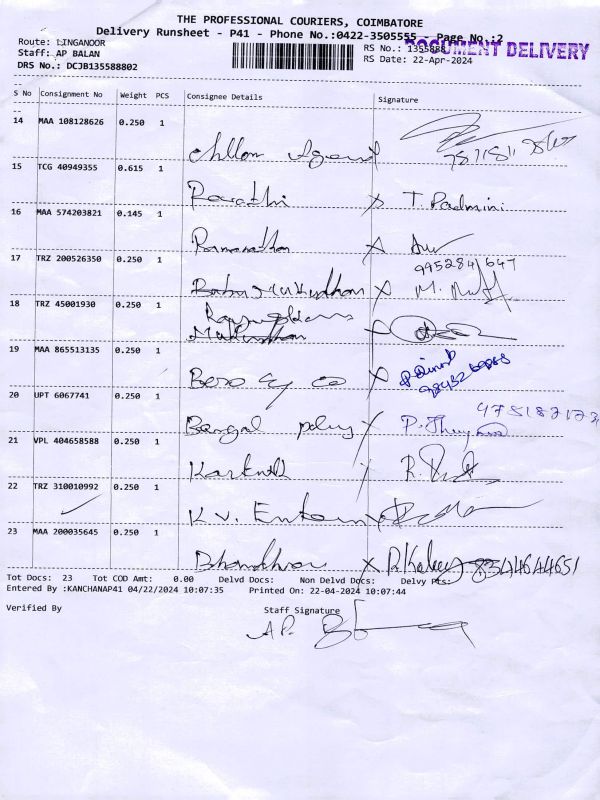 THE PROFESSIONAL COURIERS, COIMBATORE
Delivery Runsheet - P41 - Phone No.:0422-3505555 - Page No.:2
DOCUMENT DELIVERY
Route: LINGANOOR
RS No.: 1355888
Staff: AP BALAN
RS Date: 22-Apr-2024
DRS No.: DCJB135588802
S No Consignment No Weight PCS Consignee Details Signature
14 MAA 108128626 0.250 1
15 TCG 40949355 0.615 1
Revathi X T. Padmini
16 MAA 574203821 0.145 1
Ramanathan X
17 TRZ 200526350 0.250 1
9952841647
X M.
18 TRZ 45001930 0.250 1
19 MAA 865513135 0.250 1
X
20 UPT 6067741 0.250 1
Bengal X P.
21 VPL 404658588 0.250 1
Karthik R.
22 TRZ 310010992 0.250 1
K.V.
23 MAA 200035645 0.250 1
X
Tot Docs: 23 Tot COD Amt: 0.00 Delvd Docs: Non Delvd Docs: Delvy Pts:
Entered By :KANCHANAP41 04/22/2024 10:07:35 Printed On: 22-04-2024 10:07:44
Verified By Staff Signature
A.P.